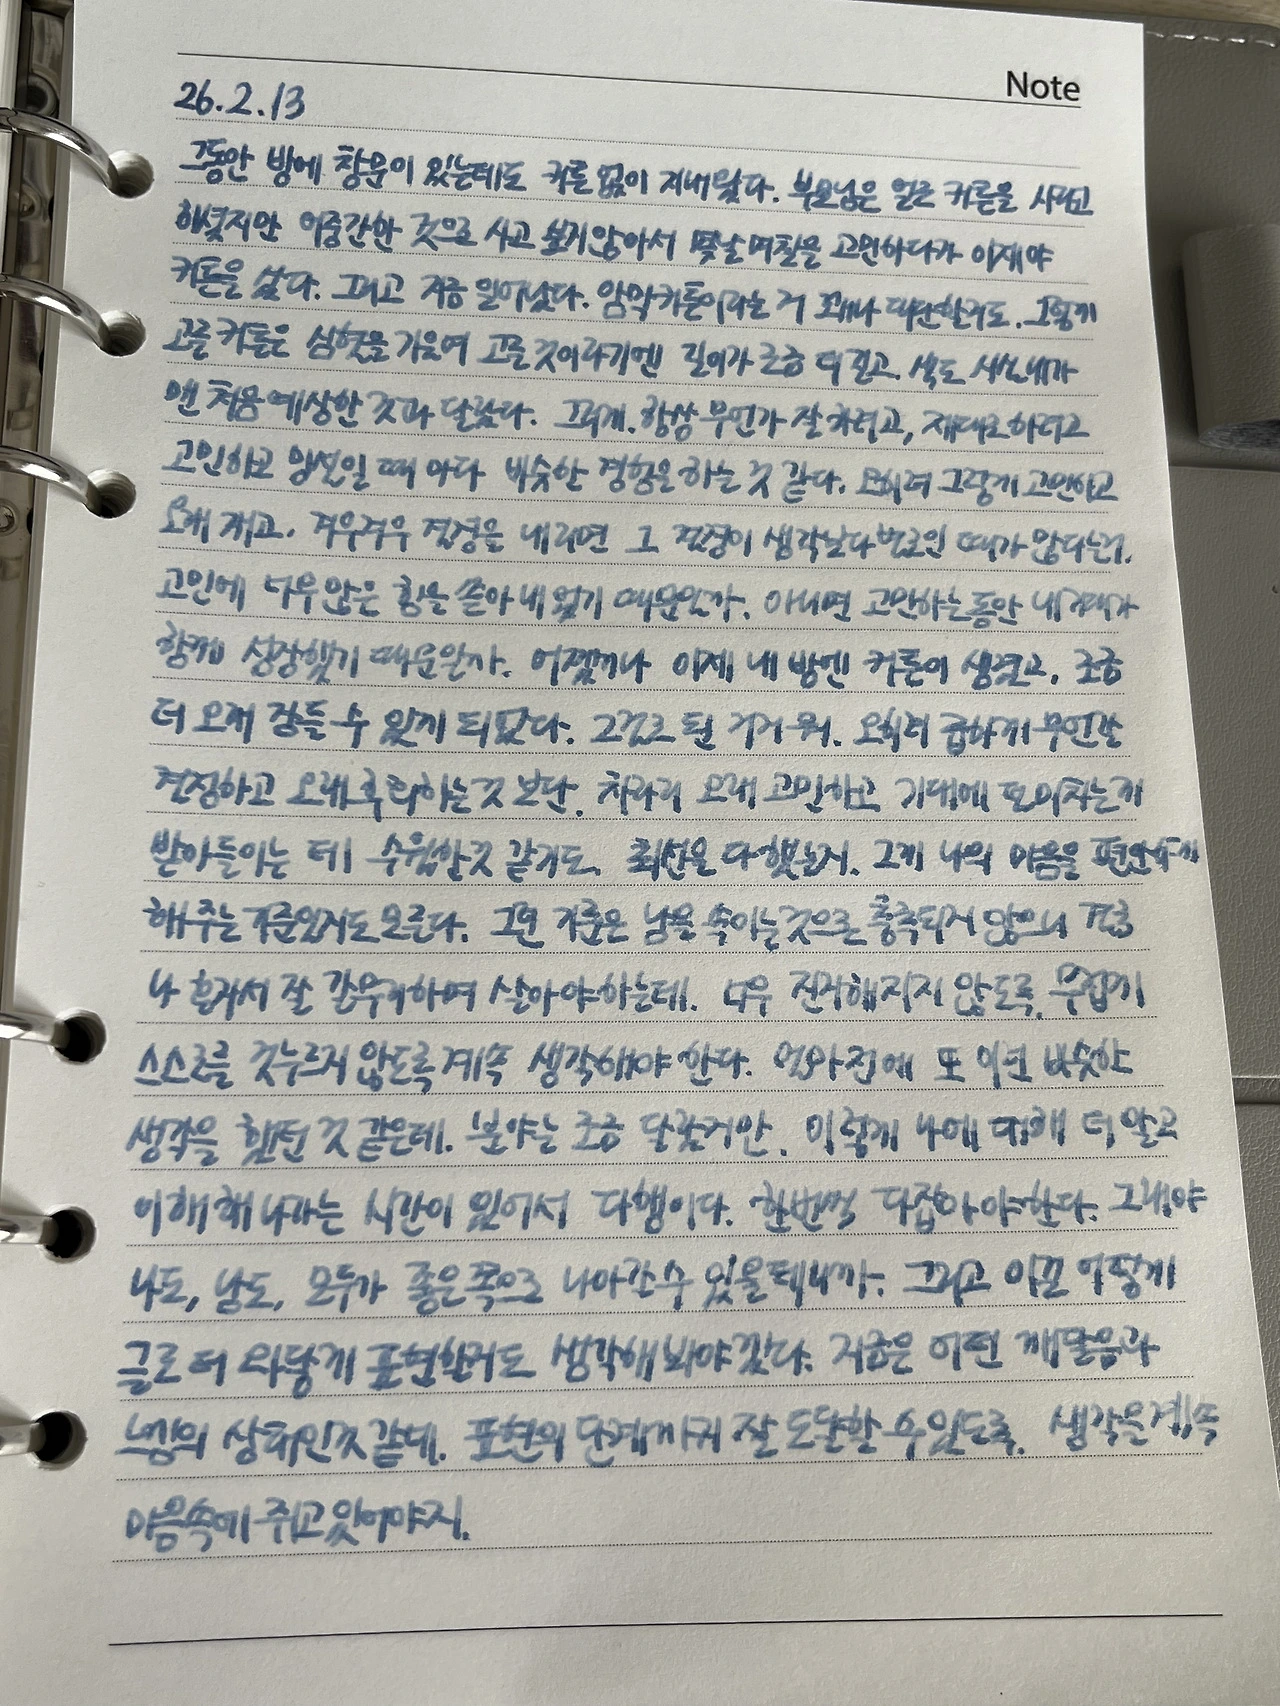 Note
26.2.13
그동안 방에 창문이 있는데도 커튼 없이 지내왔다. 부모님은 얼른 커튼을 사라고
하셨지만 어중간한 것으로 사고 싶지 않아서 몇날 며칠을 고민하다가 이제야
커튼을 샀다. 그리고 지금 일어났다. 암막커튼이라는 거 꽤나 대단할지도. 그렇게
고른 커튼은 심혈을 기울여 고른 것이라기엔 길이가 조금 더 길고 색도 사실 내가
맨 처음 예상한 것과 달랐다. 그러게. 항상 무언가 잘 하려고, 제대로 하려고
고민하고 망설일 때 마다 비슷한 경험을 하는 것 같다. 오히려 그렇게 고민하고
오래 재고. 겨우겨우 결정을 내리면 그 결정이 생각보다 별로인 때가 많다는거.
고민에 너무 많은 힘을 쏟아 내었기 때문일까. 아니면 고민하는 동안 내 기대가
함께 성장했기 때문일까. 어쨌거나 이제 내 방엔 커튼이 생겼고. 조금
더 오래 잠들 수 있게 되었다. 그걸로 된 거지 뭐. 오히려 급하게 무언갈
결정하고 오래 후회하는 것 보단. 차라리 오래 고민하고 기대에 못 미치는게
받아들이는 데 수월할 것 같기도. 최선을 다 했는걸. 그게 나의 마음을 편안하게
해 주는 기준인지도 모른다. 그런 기준은 남을 속이는 것으로 충족되지 않으니
나 혼자서 잘 갈무리하며 살아야 하는데. 너무 진지해지지 않도록. 무겁게
스스로를 짓누르지 않도록 계속 생각해야 한다. 얼마전에 또 이런 비슷한
생각을 했던 것 같은데. 분야는 조금 달랐지만. 이렇게 나에 대해 더 알고
이해해 나가는 시간이 있어서 다행이다. 한번씩 다잡아야 한다. 그래야
나도, 남도, 모두가 좋은 쪽으로 나아갈 수 있을 테니까. 그리고 이걸 어떻게
글로 더 와닿게 표현할지도 생각해 봐야겠다. 지금은 어떤 깨달음과
느낌의 상태인 것 같네. 표현의 단계까지 잘 도달할 수 있도록. 생각을 계속
마음속에 쥐고 있어야지.